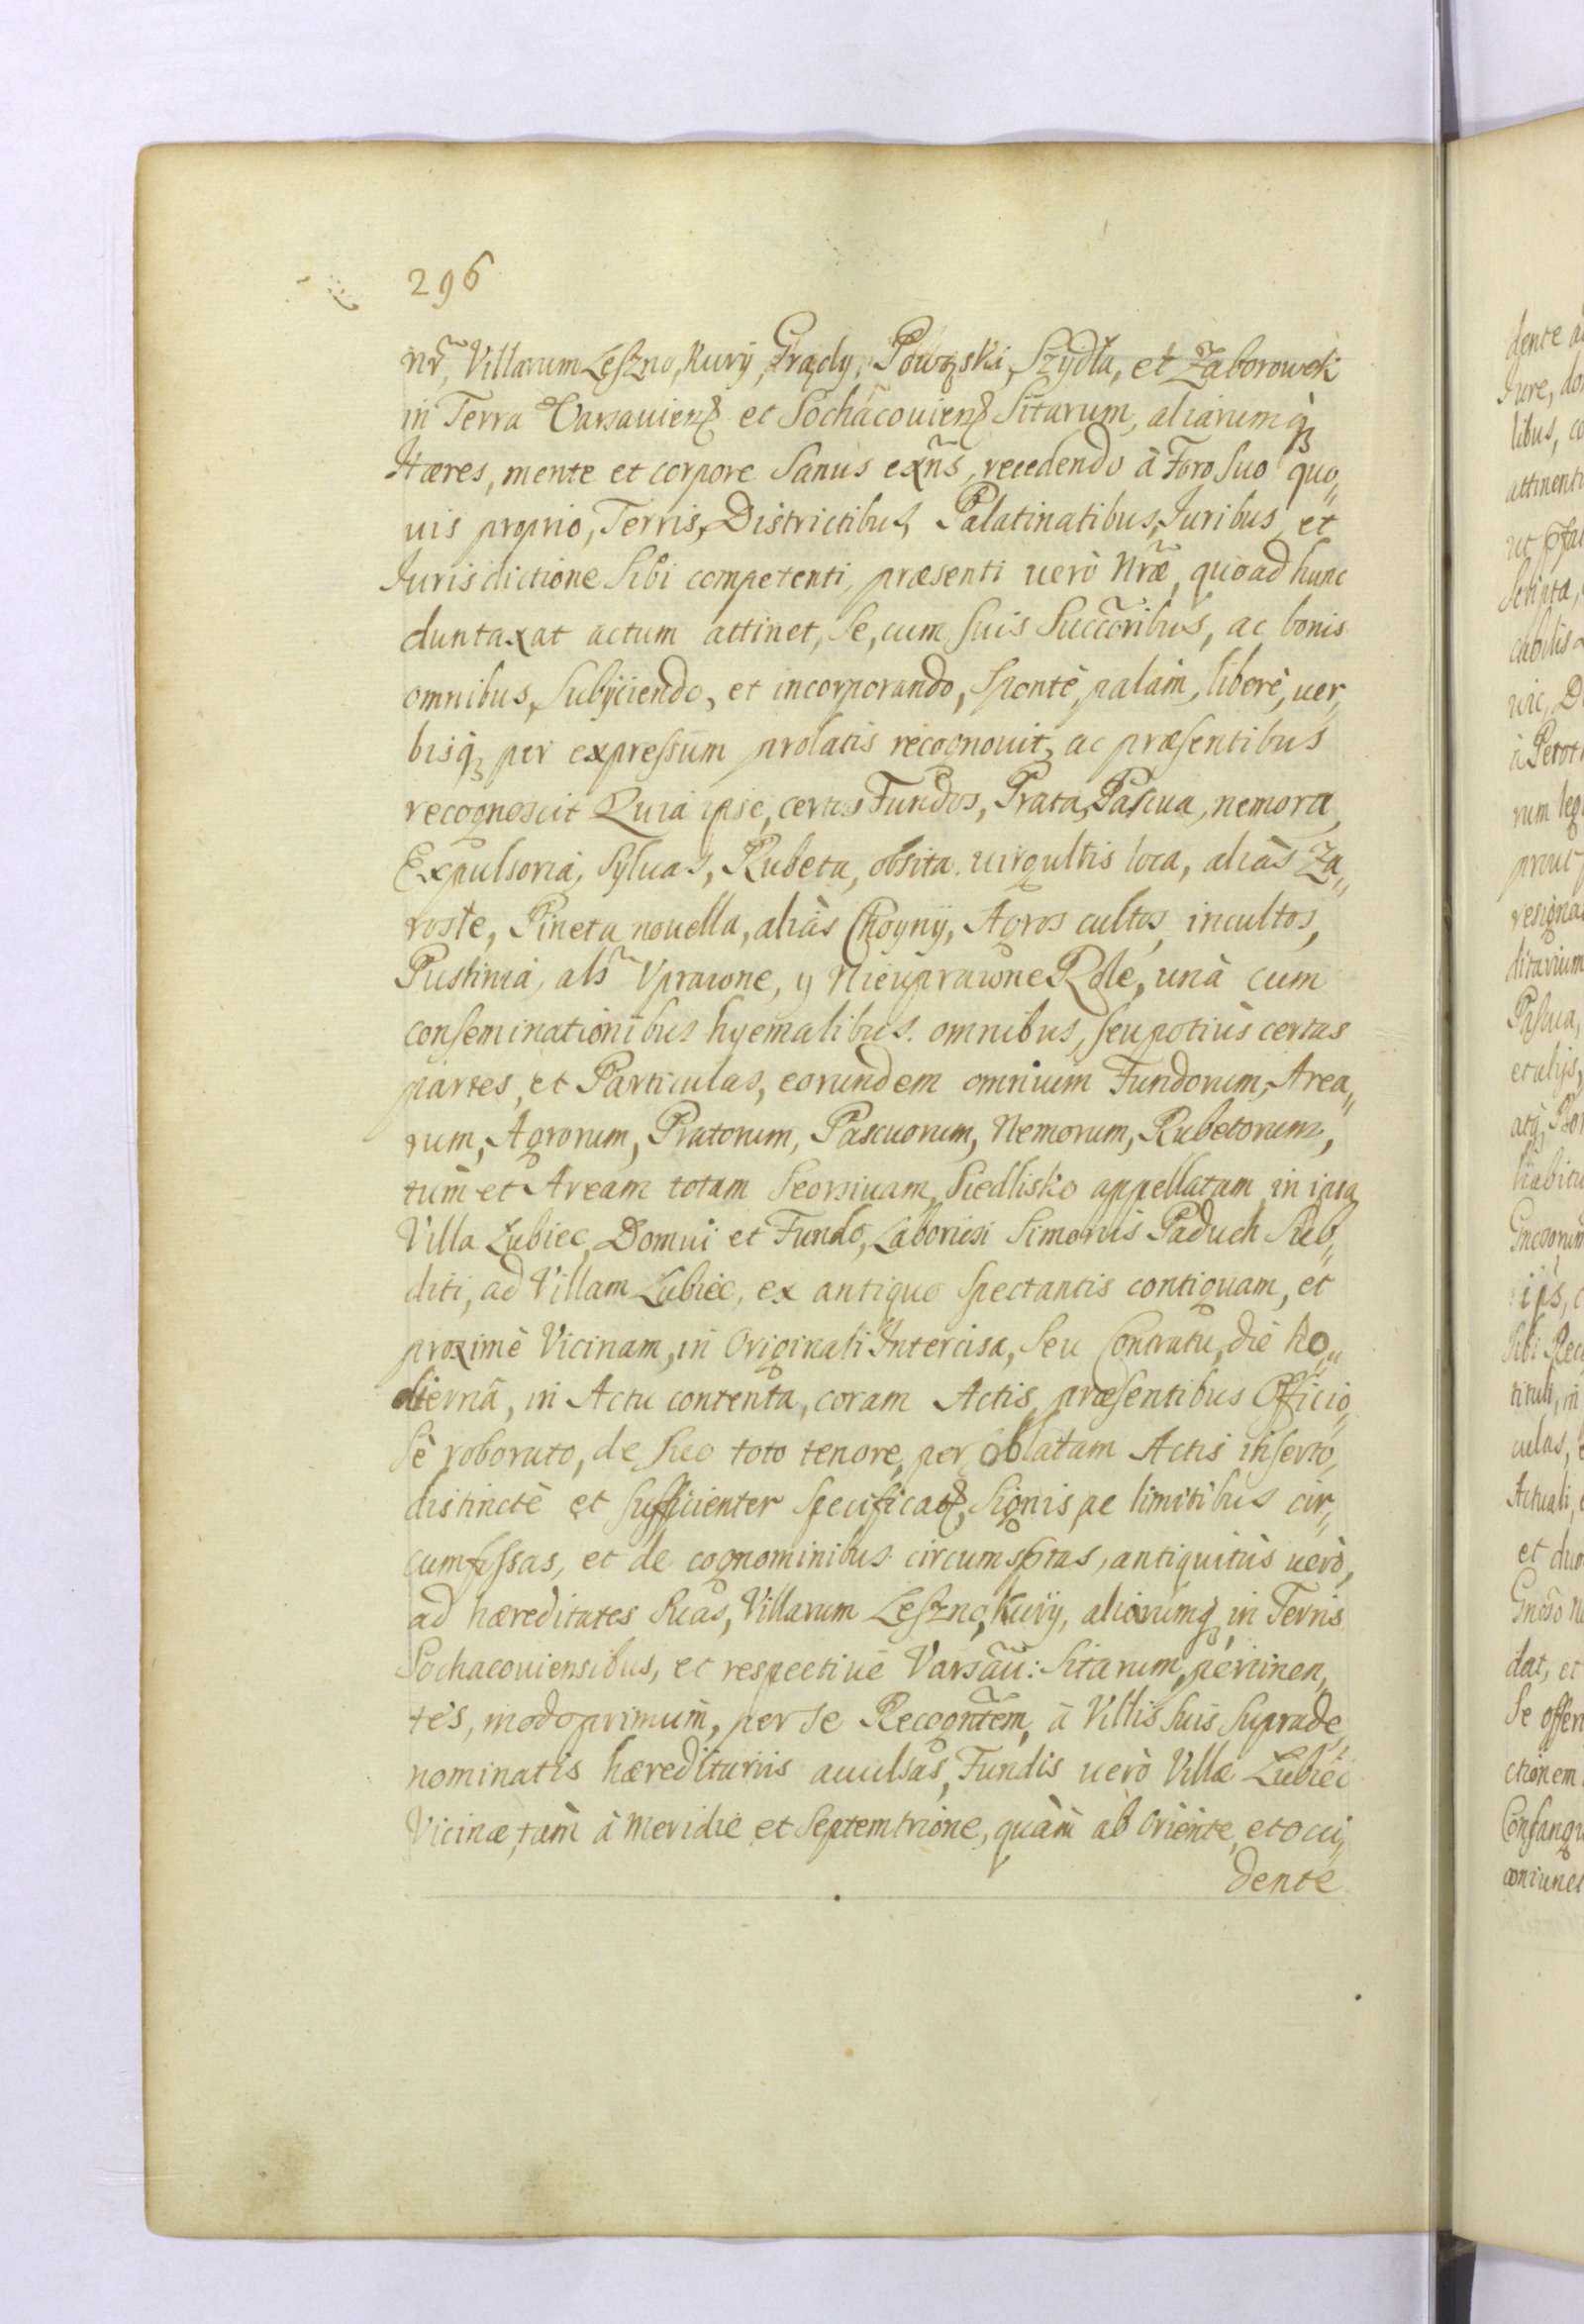 296
nr̃, Villarum Leszno, Kury, Grądy, Powązki, Szydła, et Zaborowek
in Terra Varsauien̄ et Sochãcouien̄ Sitarum, aliarumq̨
Hæres, mente et corpore Sanus exñs, recedendo à Foro Suo quo„
uis proprio, Terris, Districtibus, Palatinatibus, Juribus et
Jurisdictione Sibi competenti, præsenti uerò Nræ̃, quo ad hunc
duntaxat actum attinet, Se, cum Suis Succõribus, ac bonis
omnibus, Subÿciendo, et incorporando, Spontè, palàm, liberè, uer„
bisq̨ per expressum prolatis recognouit, ac præsentibus
recognoscit Quia ipse, certos Fundos, Prata, Pascua, nemora,
Expulsoria, Syluas, Rubeta, obsita uirgultis loca, aliàs Za„
roste, Pineta nouella, aliàs Choyny, Agros cultos, incultos,
Pustinia, als̃ Vprawne, y Nieuprawne Role, unà cum
conseminationibus hyemalibus omnibus, Seu potiùs certas
partes, et Particulas, eorundem omnium Fundorum, Area„
rum, Agrorum, Pratorum, Pascuorum, Nemorum, Rubetorum,
tùm et Aream totam Seorsiuam, Siedlisko appellatam in ipsa
Villa Lubiec, Domui et Fundo, Laboriosi Simonis Paduch Sub„
diti, ad Villam Lubiec, ex antiquo Spectantis contiguam, et
proximè Vicinam, in Originali Intercisa, Seu Contratu, die ho„
dierna, in Actu contenta, coram Actis præsentibus Officio„
Sè roborato, de Suo toto tenore, per Oblatam Actis inserto,
distinctè et Sufficienter Specificat̄, Signis ac limitibus cir„
cumfessas, et de cognominibus circumsptas, antiquitùs uerò,
ad hæreditates Suas, Villarum Leszno, Kury, aliarumq̨ in Terris
Sochacouiensibus, et respectiuè Varsãu: Sitarum, pertinen„
tes, modo primùm, per Se Recogñtem, à Villis Suis Suprade„
nominatis hæredituriis auulsas, Fundis uerò Villæ Lubiec
Vicinæ, tàm à Meridie et Septemtrione, quàm ab Oriente, et occi„
dente